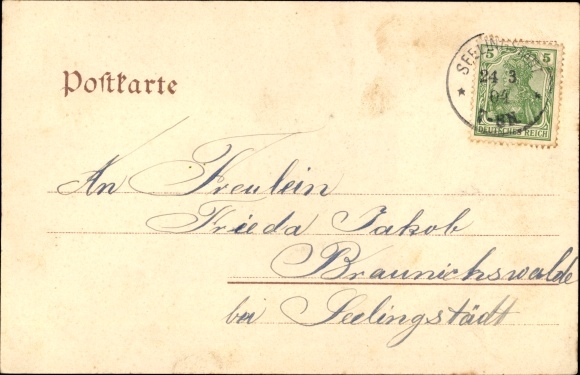 SEELINGSTÄDT
5 5
24 3
04
7-8N.
DEUTSCHES REICH
Postkarte
An Freulein
Frieda Jakob
Braunichswalde
bei Seelingstädt